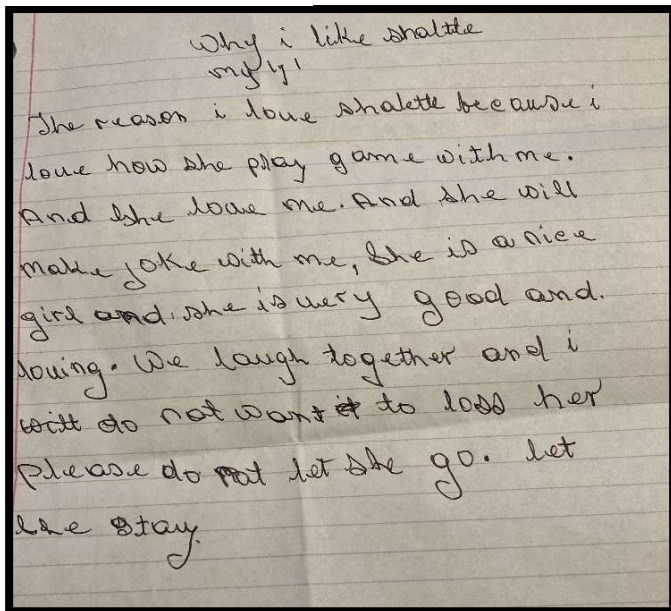 Why i like shaltte
my
The reason i love shalette because i
love how she play game with me.
And she love me. And she will
make joke with me, She is a nice
girl and she is very good and.
loving. We laugh together and i
will do not want it to loss her
please do not let she go. let
she stay.